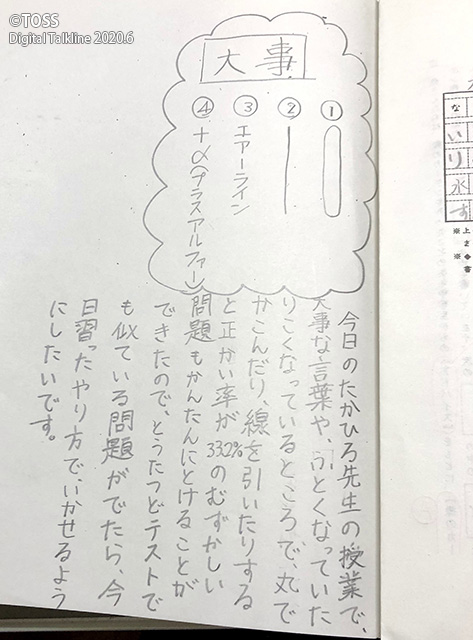 ©TOSS
Digital Talkline 2020.6
大事
①
②
③ エアーライン
④ +α(プラスアルファー)
今日のたかひろ先生の授業で、
大事な言葉や、ふとくなっていた
りこくなっているところで、丸で
かこんだり、線を引いたりする
と正かい率が33.2%のむずかしい
問題もかんたんにとけることが
できたので、とうたつどテストで
も似ている問題がでたら、今
日習ったやり方で、いかせるよう
にしたいです。
な
い
り
水
す
※上
2